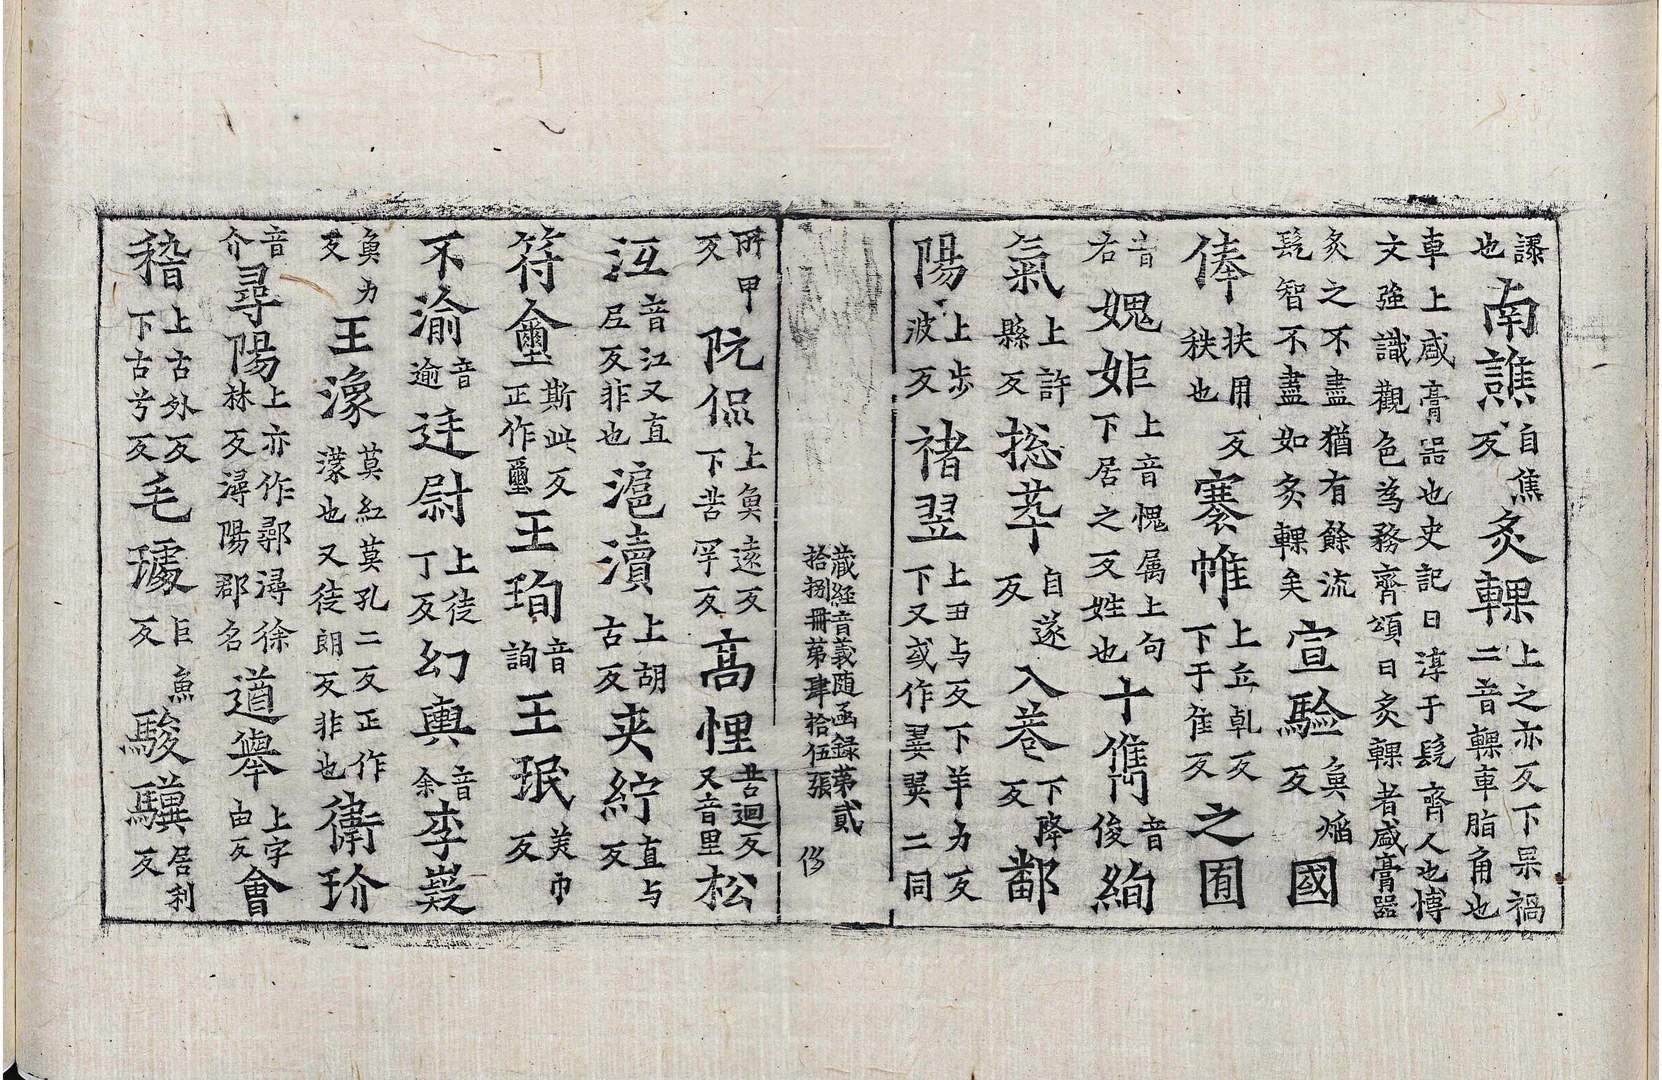 謑也南譙自焦反炙輠上之亦反下杲禍二音輠車脂角也
車上咸膏器也史記曰淳于髠齊人也博文強識觀色為務齊頌曰炙輠者咸膏器
炙之不盡猶有餘流髠智不盡如炙輠矣宣驗魚焔反國
俸扶用反秩也褰帷上丘乹反下于隹反之囿
音右媿姖上音愧属上句下居之反姓也十儁音俊絢
氣上許縣反捴萃自遂反入巷下降反鄱
陽上步波反禇翌上丑与反下羊力反下又或作翼翼二同
藏經音義随函録苐貳拾捌冊苐肆拾伍張
所甲反阮侃上魚逺反下苦罕反高悝苦迴反又音里松
江音江又直𡰱反非也滬瀆上胡古反夹紵直与反
符壐斯此反正作璽王珣音詢王珉美巾反
不渝音逾迋尉上徒丁反幻輿音余李嶷
魚力反王濛莫紅莫孔二反正作濛也又徒朗反非也衛玠
音介尋陽上亦作鄩潯徐林反潯陽郡名道舉上字由反會
稽上古外反下古兮反毛璩巨魚反駿驥居利反